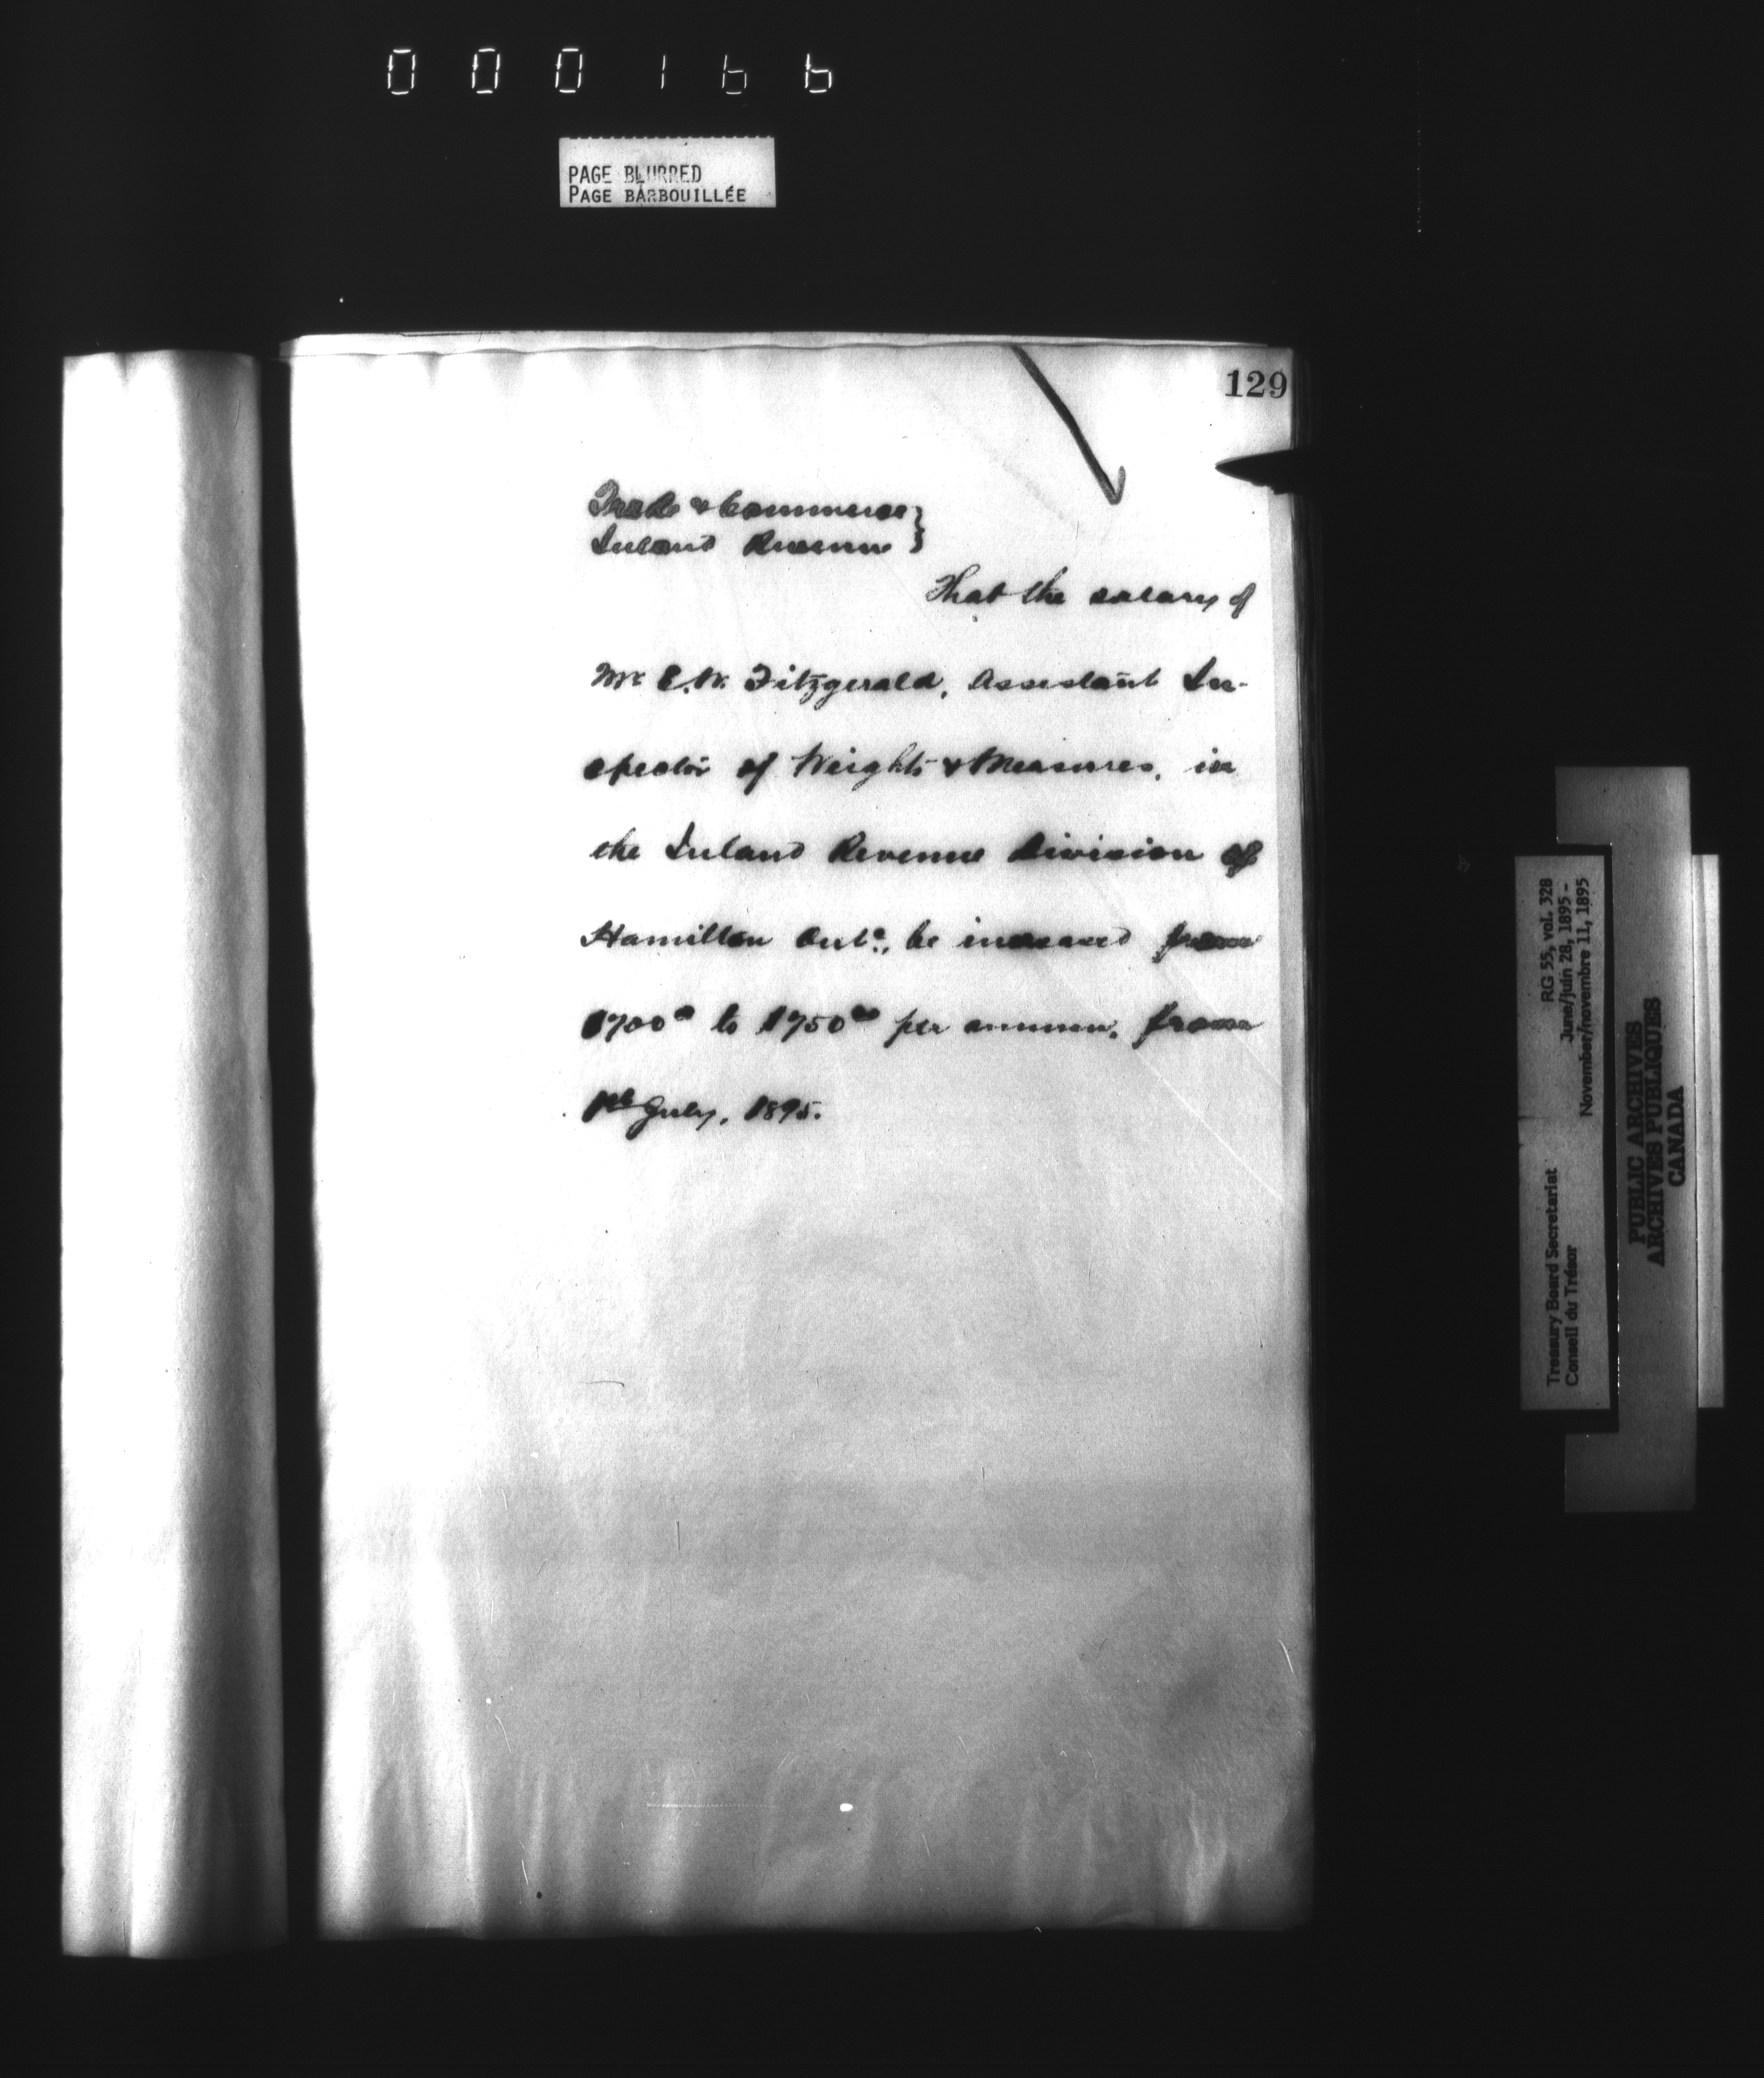 000166
PAGE BLURRED
PAGE BARBOUILLÉE
129
Trade & Commerce }
Inland Revenue }
That the salary of
Mr E. W. Fitzgerald, Assistant In-
spector of Weights & Measures, in
the Inland Revenue Division of
Hamilton Ont°., be increased from
$700⁰⁰ to $750⁰⁰ per annum, from
1st July, 1895.
Treasury Board Secretariat RG 55, vol. 328
Conseil du Trésor June/juin 28, 1895 -
November/novembre 11, 1895
PUBLIC ARCHIVES
ARCHIVES PUBLIQUES
CANADA